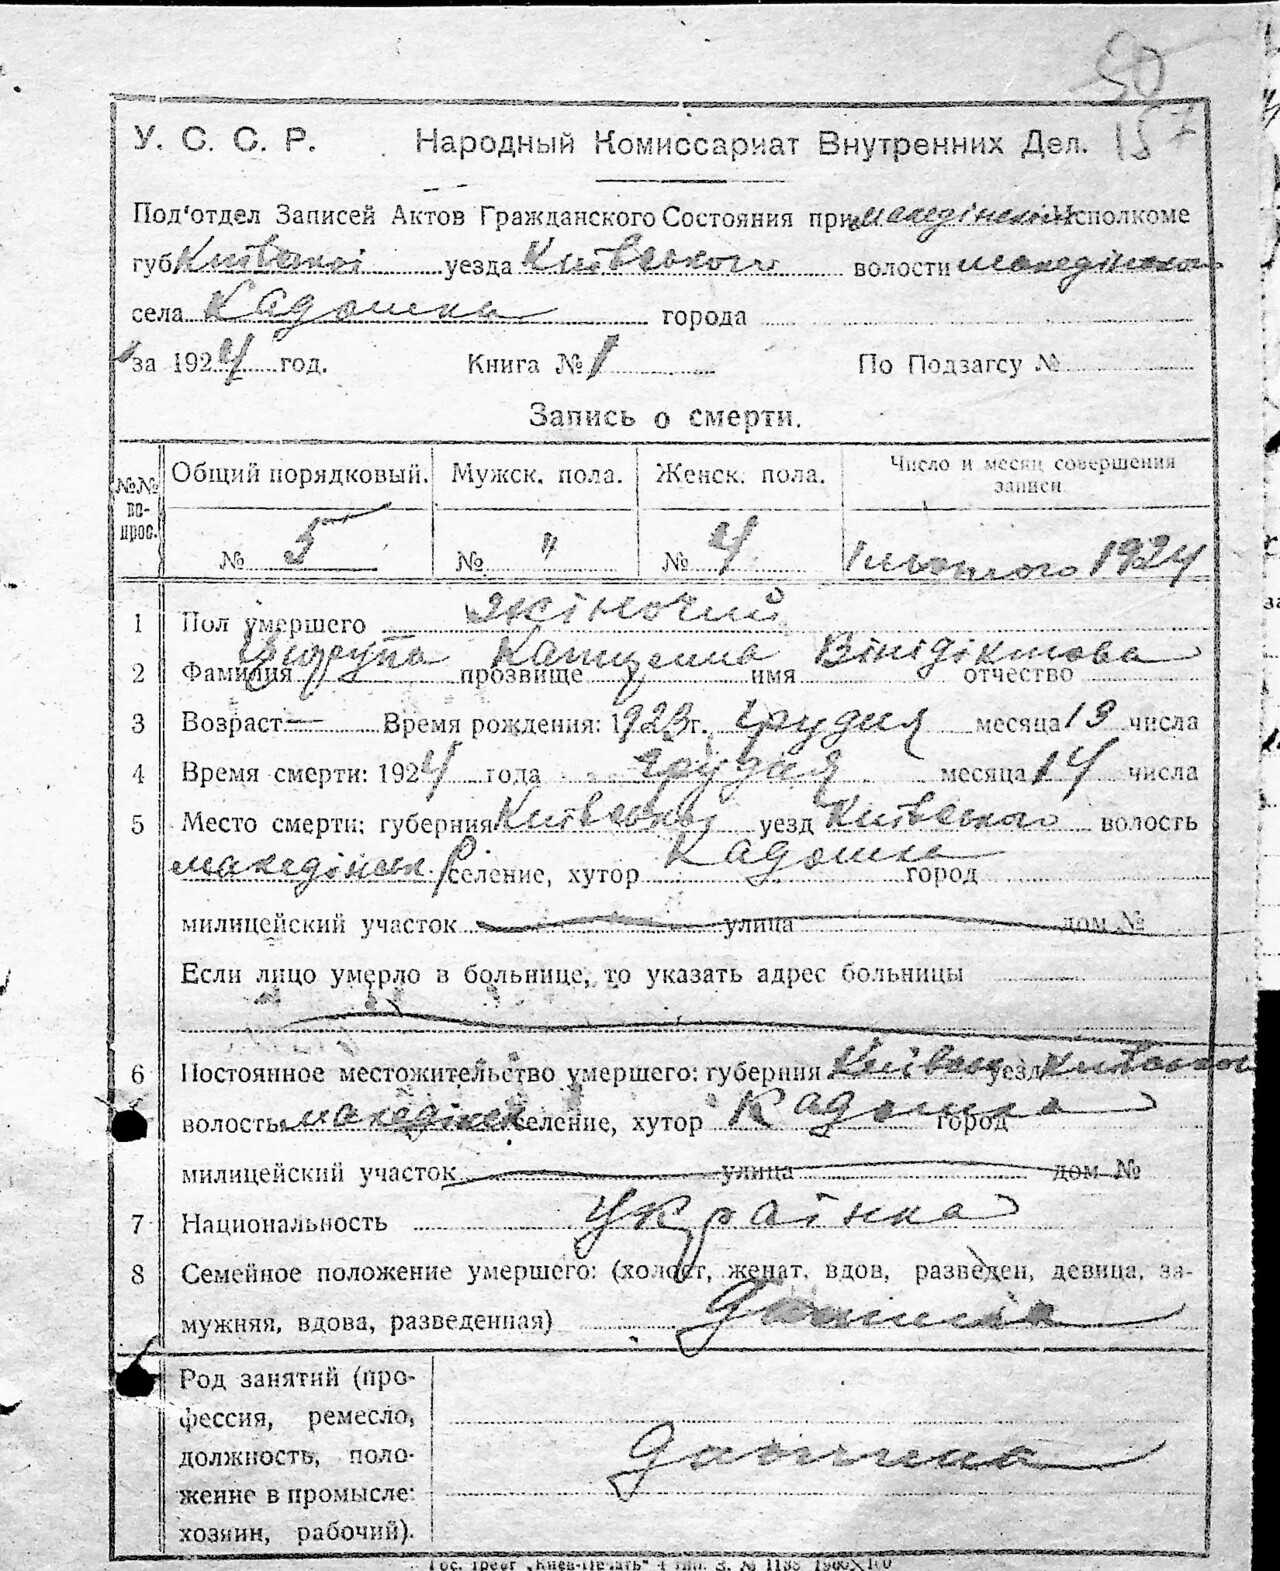 50
157
У. С. С. Р. Народный Комиссариат Внутренних Дел.
Под'отдел Записей Актов Гражданского Состояния при Македінском Исполкоме
губ. Київської уезда Київського волости Македінської
села Кадомка города
за 1924 год. Книга № 1 По Подзагсу №
Запись о смерти.
№№ вопрос. Общий порядковый. Мужск. пола. Женск. пола. Число и месяц совершения записи
№ 5 № " № 4 1 лютого 1924
1 Пол умершего жіночий
2 Фамилия прозвище имя Катерина отчество Вінідіктова
3 Возраст — Время рождения: 1923 г. грудня месяца 13 числа
4 Время смерти: 1924 года грудня месяца 14 числа
5 Место смерти: губерния Київська уезд Київського волость
Македінськ селение, хутор Кадомка город
милицейский участок улица дом №
Если лицо умерло в больнице, то указать адрес больницы
6 Постоянное местожительство умершего: губерния Київськ уезд Київського
волость Македінск селение, хутор Кадомка город
милицейский участок улица дом №
7 Национальность Українка
8 Семейное положение умершего: (холост, женат, вдов, разведен, девица, за-
мужняя, вдова, разведенная)
Род занятий (про-
фессия, ремесло,
должность, поло-
жение в промысле:
хозяин, рабочий).
дитина
Гос. трест „Киев-Печать" 4 тип. З. № 1138